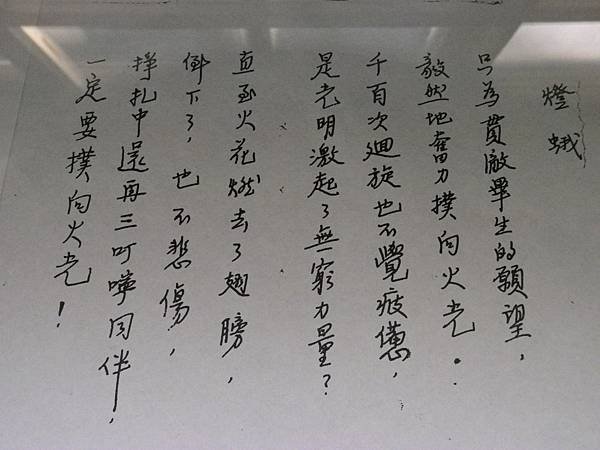 燈蛾
只為貫徹畢生的願望，
毅然地奮力撲向火光．
千百次迴旋也不覺疲憊，
是光明激起了無窮力量？
直至火花燃去了翅膀，
倒下了，也不悲傷，
掙扎中還再三叮嚀同伴，
一定要撲向火光！